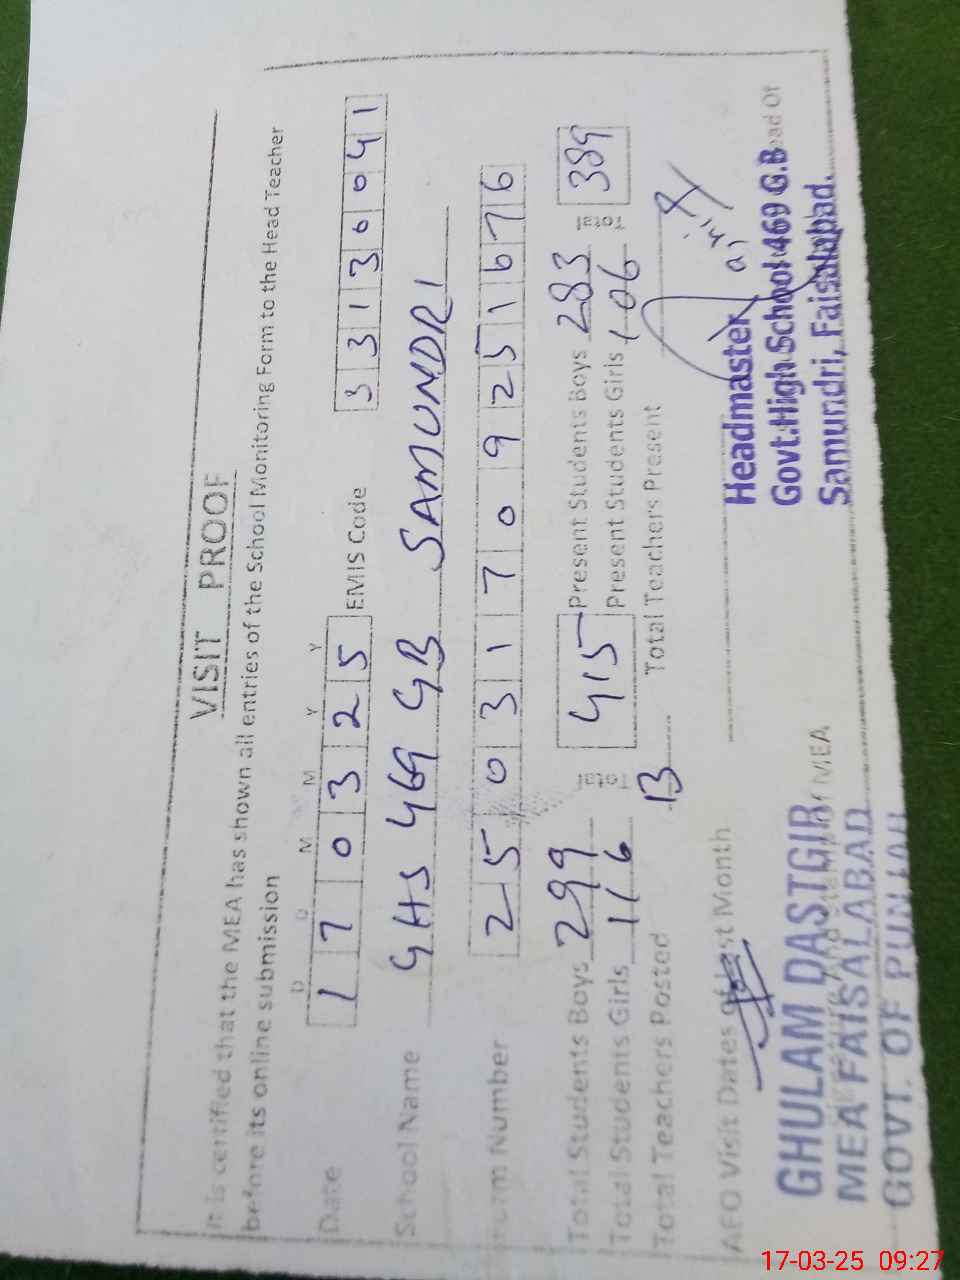 VISIT PROOF
It is certified that the MEA has shown all entries of the School Monitoring Form to the Head Teacher
before its online submission
D D M M Y Y
Date 170325 EMIS Code 33130041
School Name GHS 469 GB SAMUNDRI
Form Number 25031709251676
Total Students Boys 299 Total 415 Present Students Boys 283 Total 389
Total Students Girls 116 Present Students Girls 106
Total Teachers Posted 13 Total Teachers Present
AEO Visit Dates of Last Month
Headmaster
Govt.High School 469 G.B
Samundri, Faisalabad.
ead Of
GHULAM DASTGIR
MEA FAISALABAD
GOVT. OF PUNJAB
of MEA
17-03-25 09:27